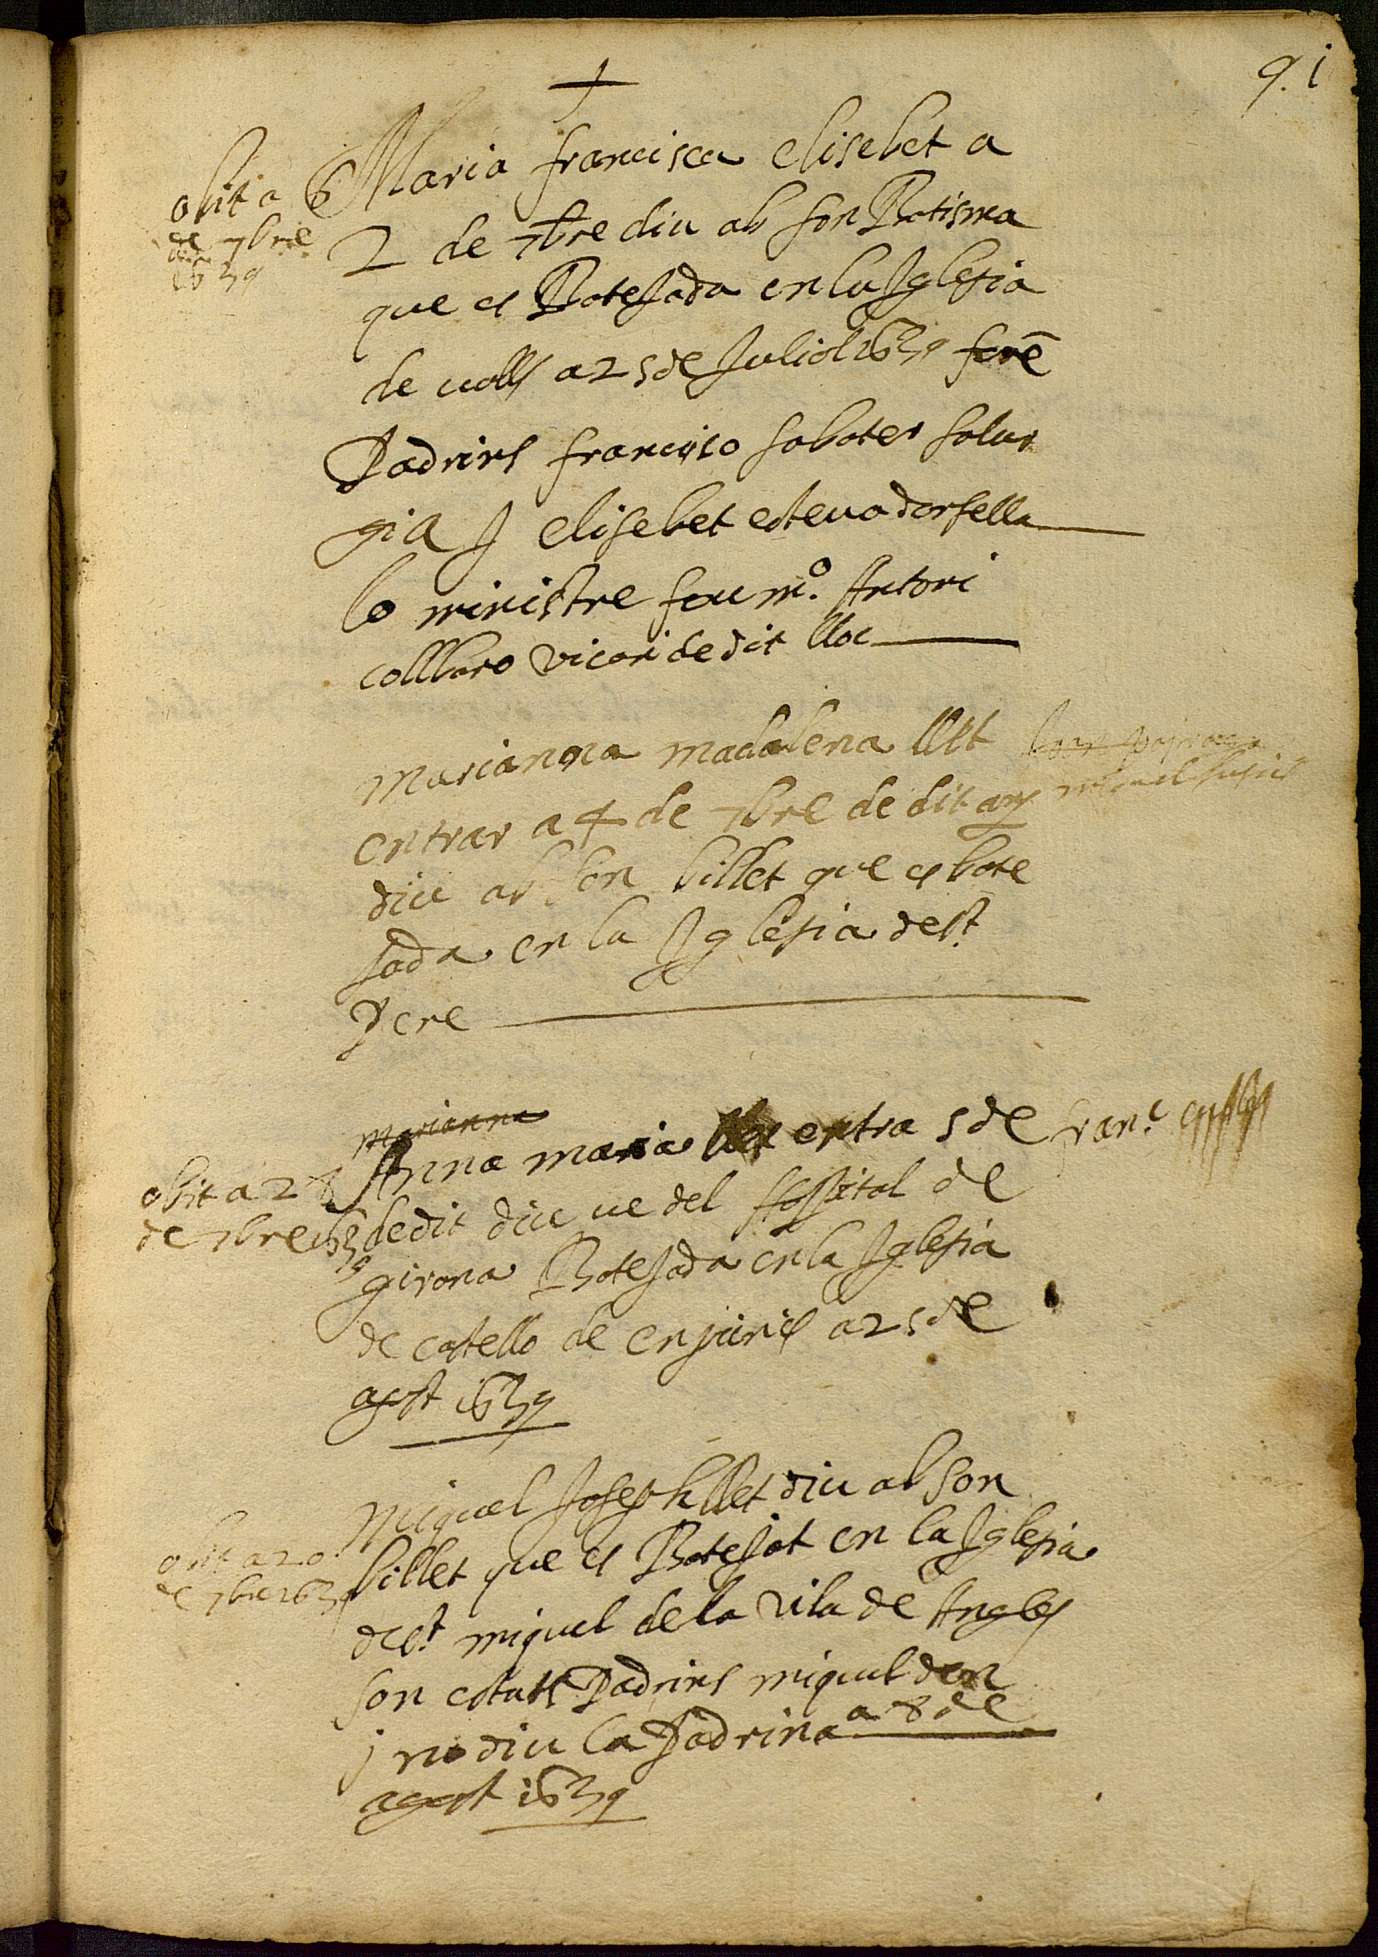 91
obit a 6
de 7bre
1639
Maria francisca elisebet a
2 de 7bre diu ab son Batisma
que es Batejada en la Iglesia
de valls a 25 de Juliol 1639 forē
Padrins francisco sabater
gia J elisebet esteva dorsella
lo ministre fou mº. Antoni
collbaro vicari de dit lloc
marianna madalena llet
entrar a 4 de 7bre de dit any
diu ab son billet que es bate
jada en la Iglesia de st.
Pere
marianna
Anna maria entra 5 de franc.
obit a 28
de 7bre 1639
de dit diu ve del Hospital de
girona Batejada en la Iglesia
de castello de a 25 de
agost 1639
Miquel Joseph llet diu ab son
obit a 20
de 7bre 1639
billet que es Batejat en la Iglesia
de st. miquel de la vila de Angles
son estats Padrins miquel
j no diu la Padrina a 8 de
agost 1639